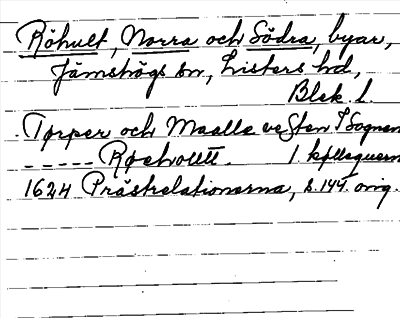 Röhult, Norra och Södra, byar,
Jämshögs sn, Listers hd,
Blek. l.
Torper och Maalle ve Sten I Sognen
- - - - - Røehollt. 1
1624 Prästrelationerna, s. 144. orig.